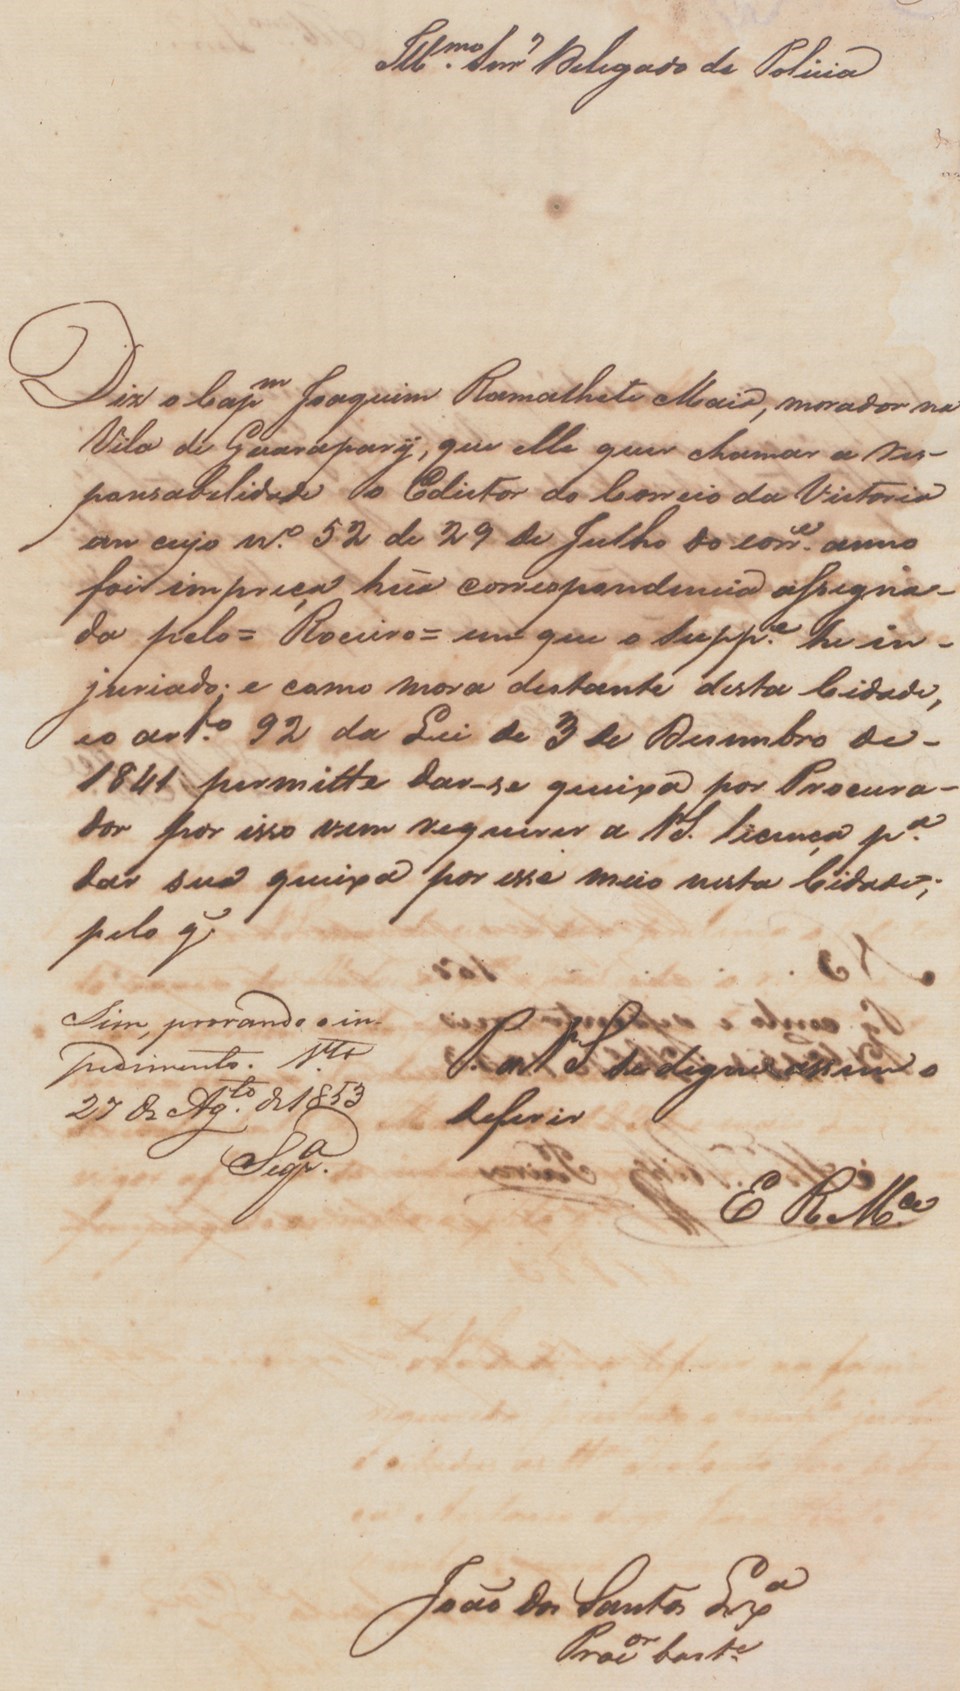 Ill.mo Snr. Delegado de Policia
Diz o Cap.m Joaquim Ramalhete Maia, morador na
Vila de Guarapary, que elle quer chamar a res-
ponsabelidade o Edictor do Correio da Victoria
em cujo n.o 52 de 29 de Julho do corr.e anno
foi impreça hũa correspondencia assigna-
da pelo = Roceiro = em que o Supp.e he in-
juriado; e como mora destante desta Cidade,
e o art.o 92 da Lei de 3 de Desembro de-
1841 permitte dar-se queixa por Procura-
dor por isso vem requerer a V.S. licença p.a
dar sua queixa por esse meio nesta Cidade;
pelo q̃
Sim, provando o im-
pedimento. V.ta
27 de Ag.to de 1853
Seq.a
P. a V.S. se digne assim o
deferir
E R M.ce
João dos Santos
Proc.or bast.e